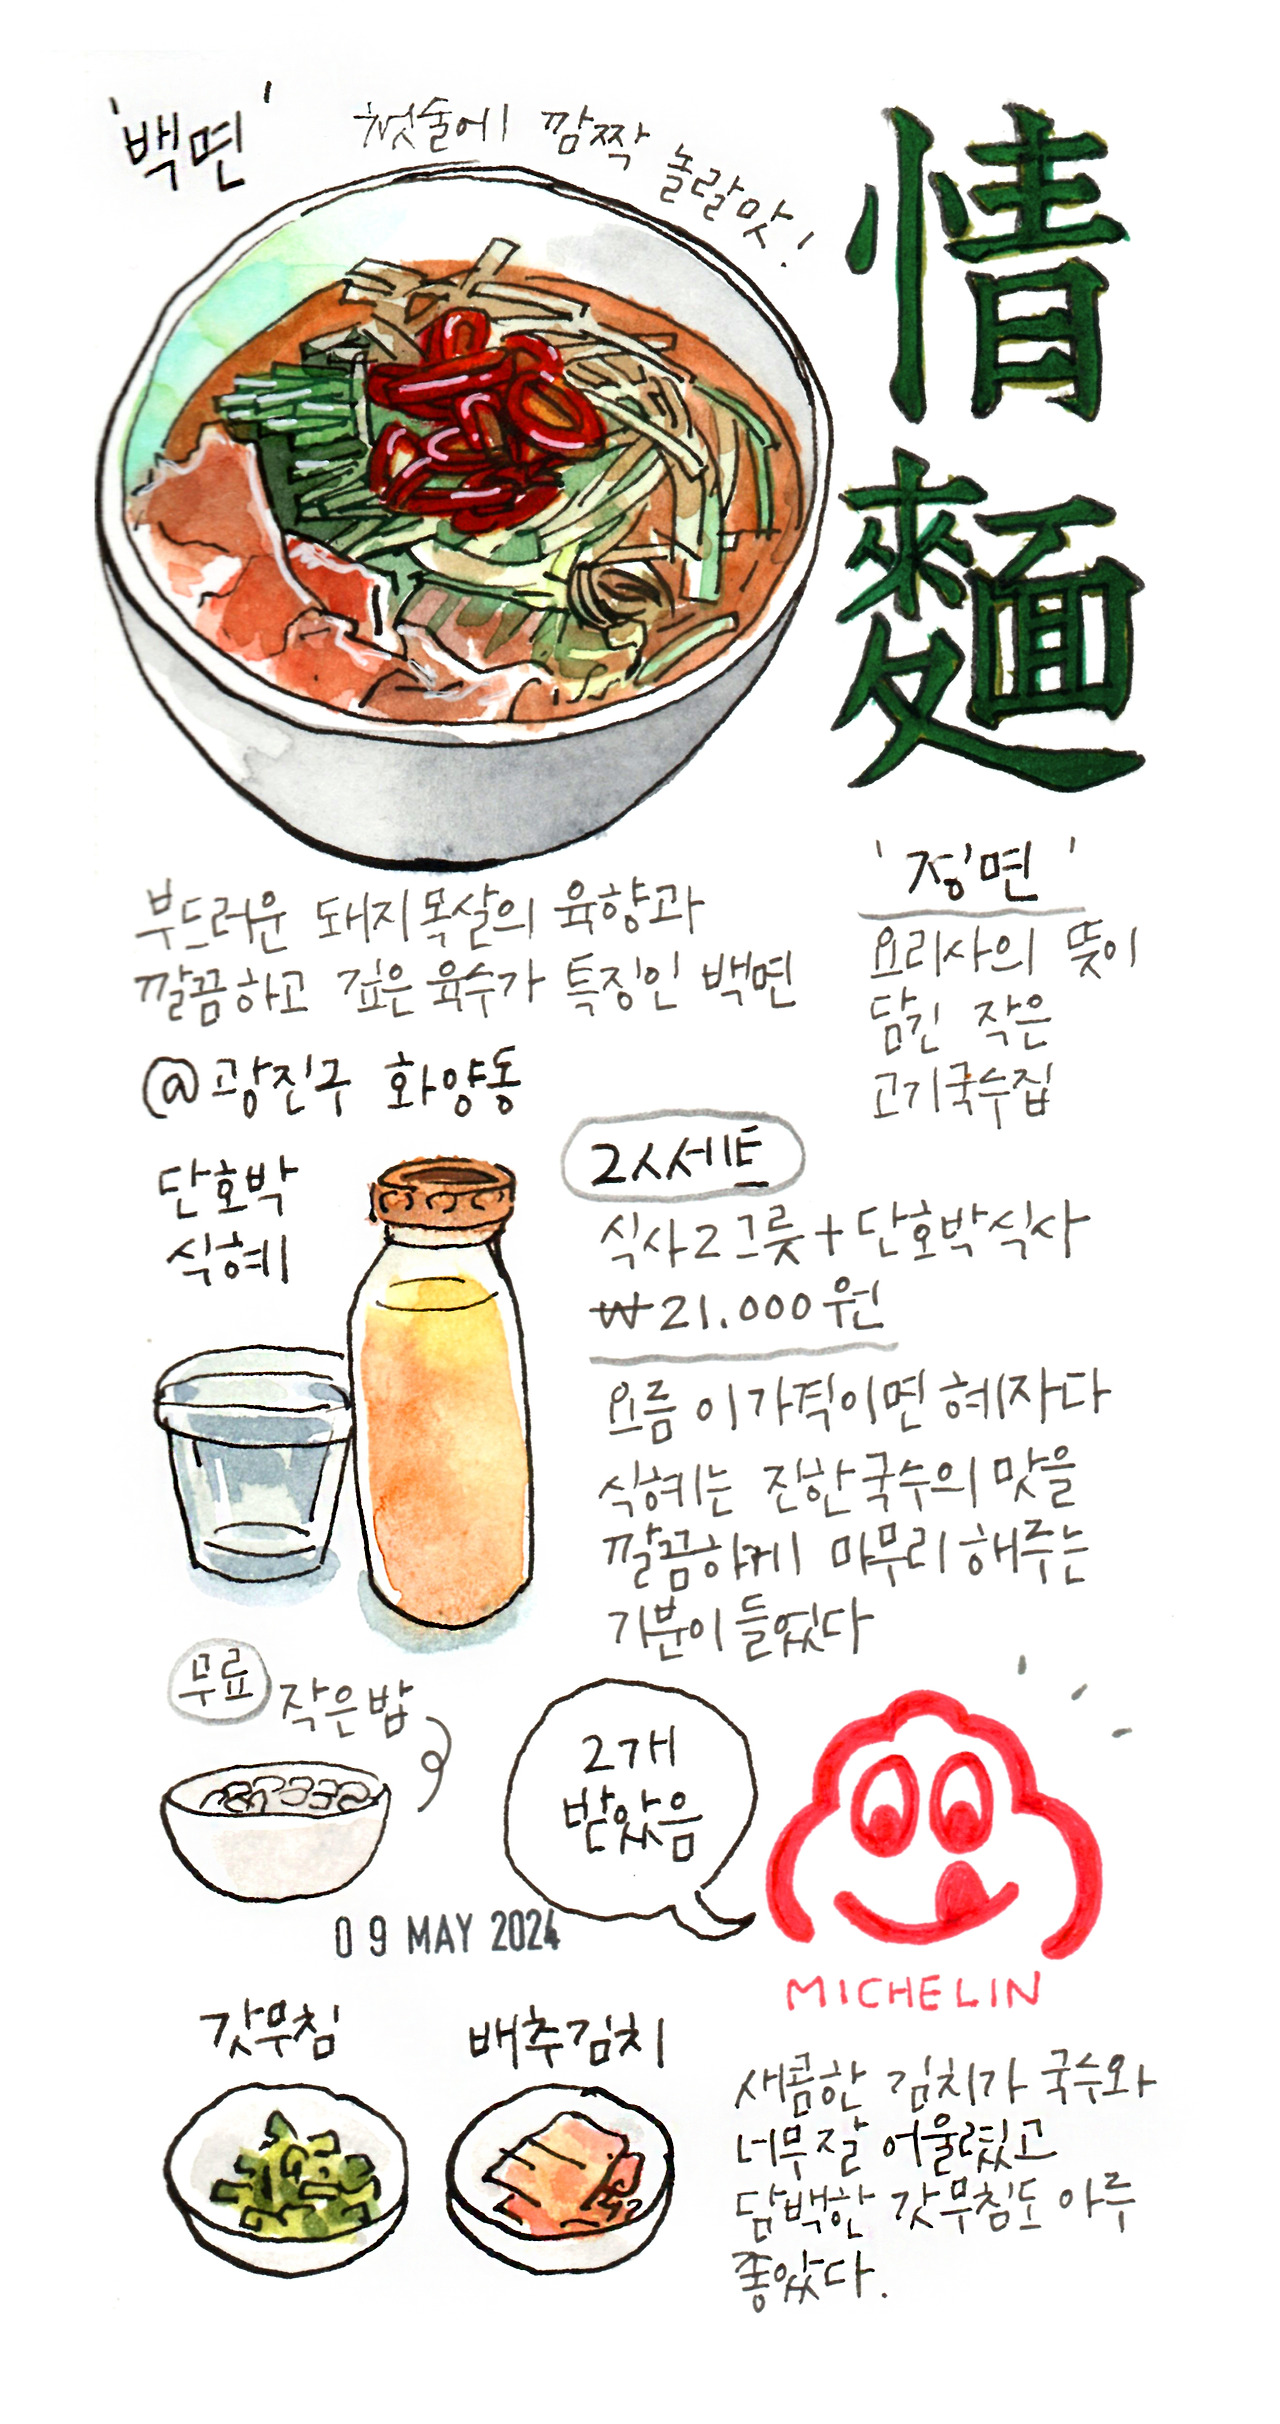 '백면'
첫술에 깜짝 놀랄맛!
情
麵
'정면'
요리사의 뜻이
담긴 작은
고기국수집
부드러운 돼지목살의 육향과
깔끔하고 깊은 육수가 특징인 백면
@광진구 화양동
단호박
식혜
2人세트
식사2그릇+단호박식사
₩21.000원
요름 이가격이면 혜자다
식혜는 진한국수의 맛을
깔끔하게 마무리해주는
기분이 들었다
무료 작은밥
2개
받았음
MICHELIN
09 MAY 2024
갓무침
배추김치
새콤한 김치가 국수와
너무잘 어울렸고
담백한 갓무침도 아주
좋았다.